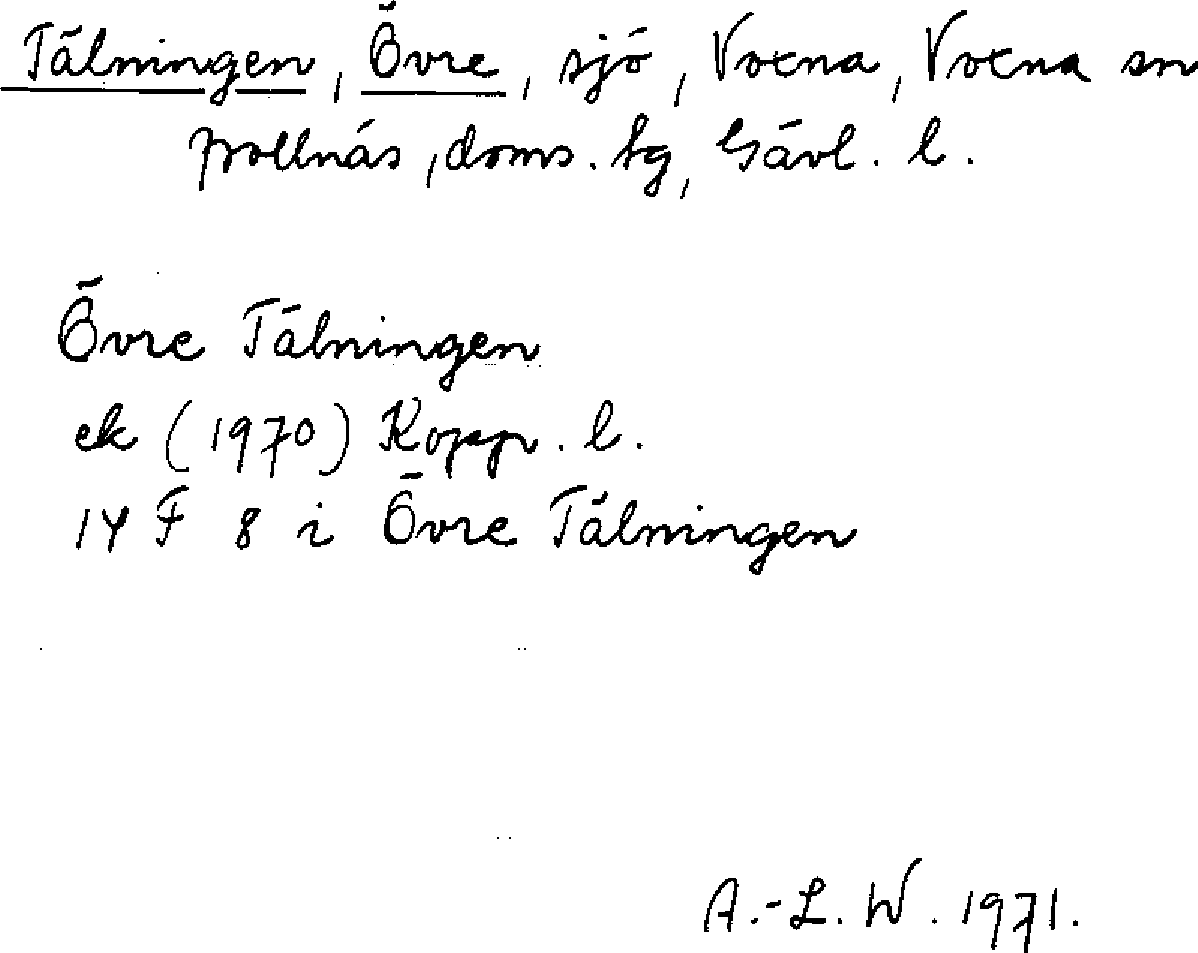 Tälningen, Övre, sjö, Voxna, Voxna sn
Bollnäs, doms. tg, Gävl. l.
Övre Tälningen
ek (1970) Kopp. l.
14 F 8 i Övre Tälningen
A.-L. W. 1971.